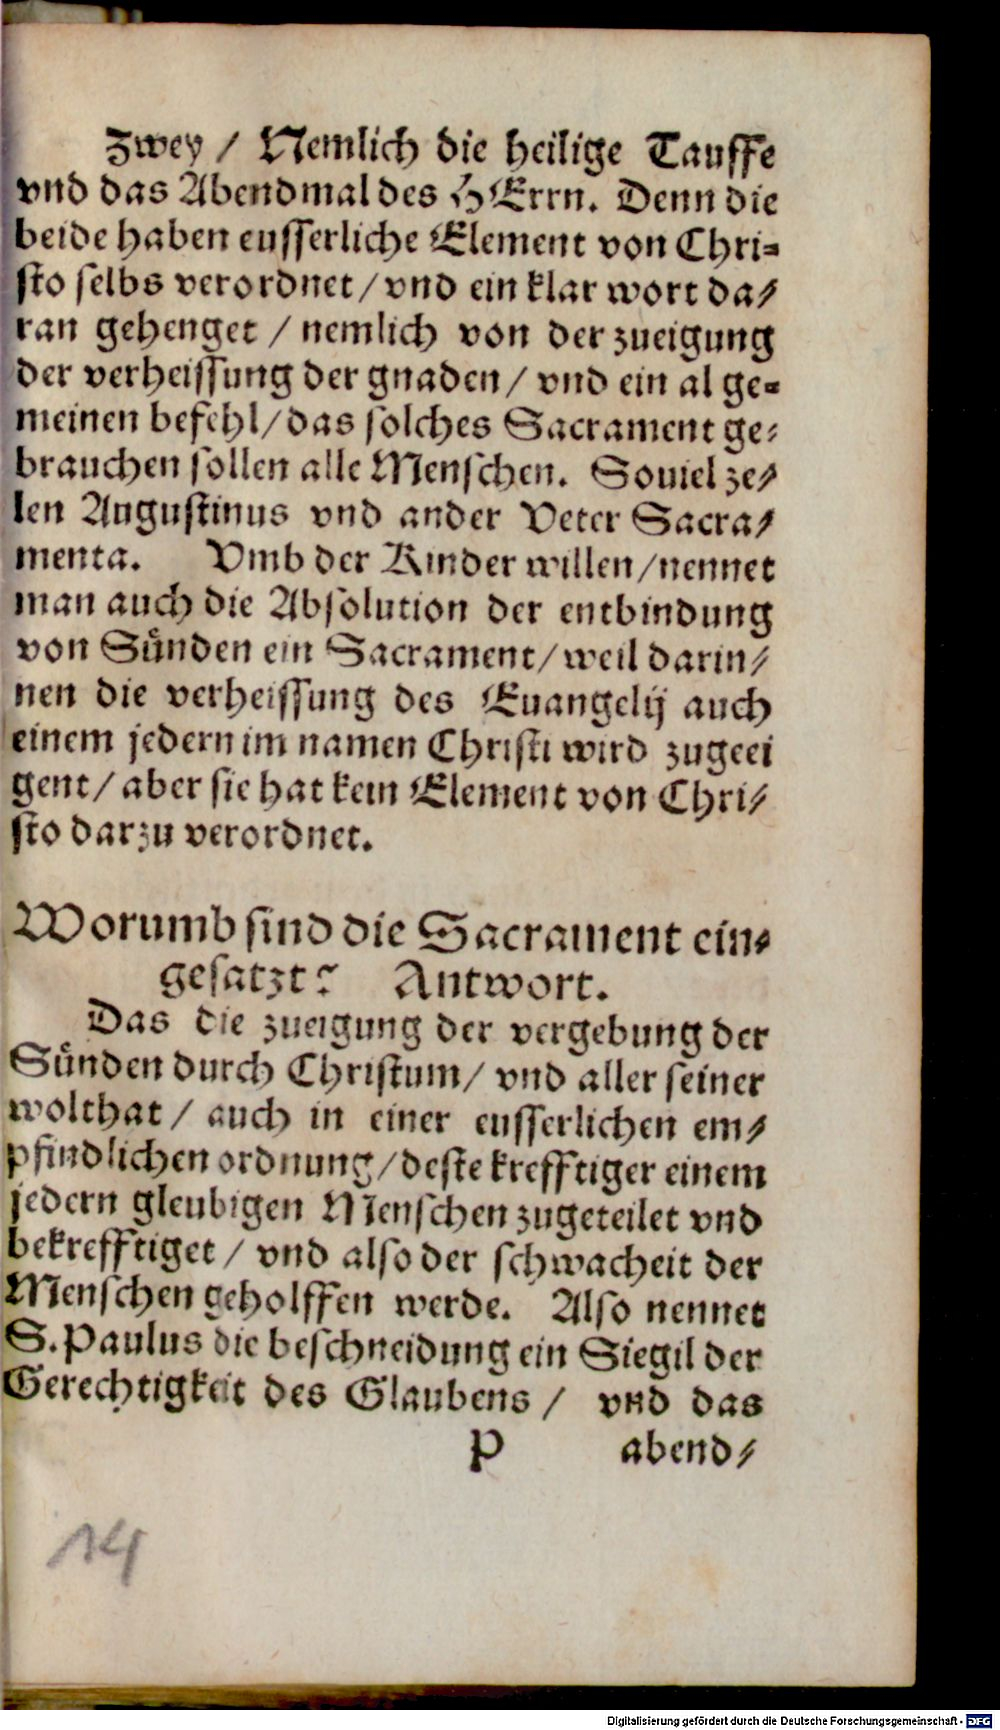 Zwey / Nemlich die heilige Tauffe
vnd das Abendmal des HErrn. Denn die
beide haben eusserliche Element von Chri⸗
sto selbs verordnet / vnd ein klar wort da⸗
ran gehenget / nemlich von der zueigung
der verheissung der gnaden / vnd ein al ge⸗
meinen befehl / das solches Sacrament ge⸗
brauchen sollen alle Menschen. Souiel ze⸗
len Augustinus vnd ander Veter Sacra⸗
menta. Vmb der Kinder willen / nennet
man auch die Absolution der entbindung
von Sünden ein Sacrament / weil darin⸗
nen die verheissung des Euangelij auch
einem jedern im namen Christi wird zugeei
gent / aber sie hat kein Element von Chri⸗
sto darzu verordnet.
Worumb sind die Sacrament ein⸗
gesatzt? Antwort.
Das die zueigung der vergebung der
Sünden durch Christum / vnd aller seiner
wolthat / auch in einer eusserlichen em⸗
pfindlichen ordnung / deste krefftiger einem
jedern gleubigen Menschen zugeteilet vnd
bekrefftiget / vnd also der schwacheit der
Menschen geholffen werde. Also nennet
S. Paulus die beschneidung ein Siegil der
Gerechtigkeit des Glaubens / vnd das
P abend⸗
14
Digitalisierung gefördert durch die Deutsche Forschungsgemeinschaft - DFG